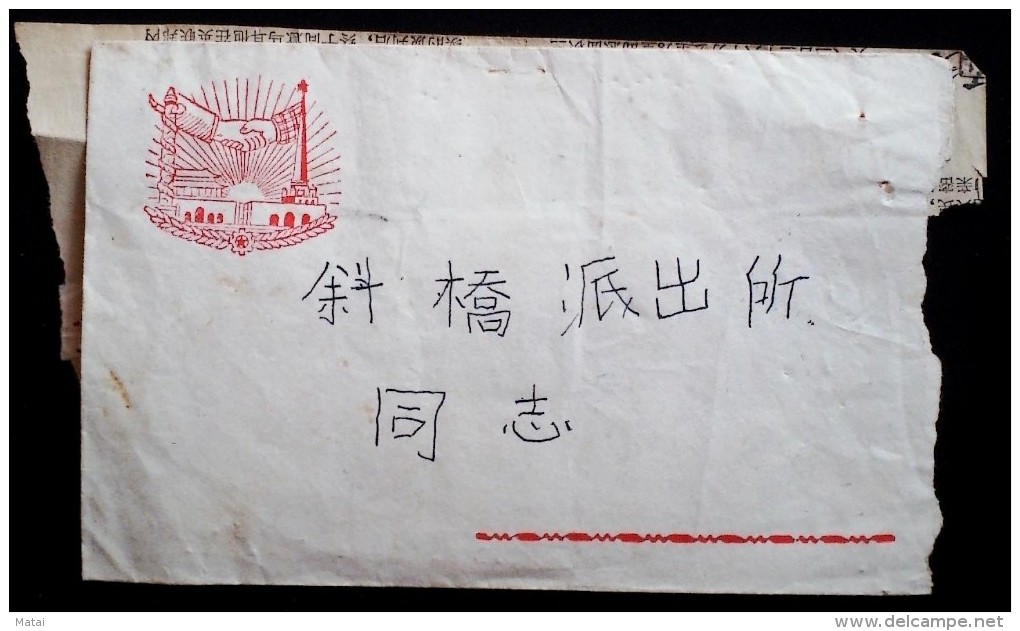 斜橋派出所
同志
Matai
delcampe.net